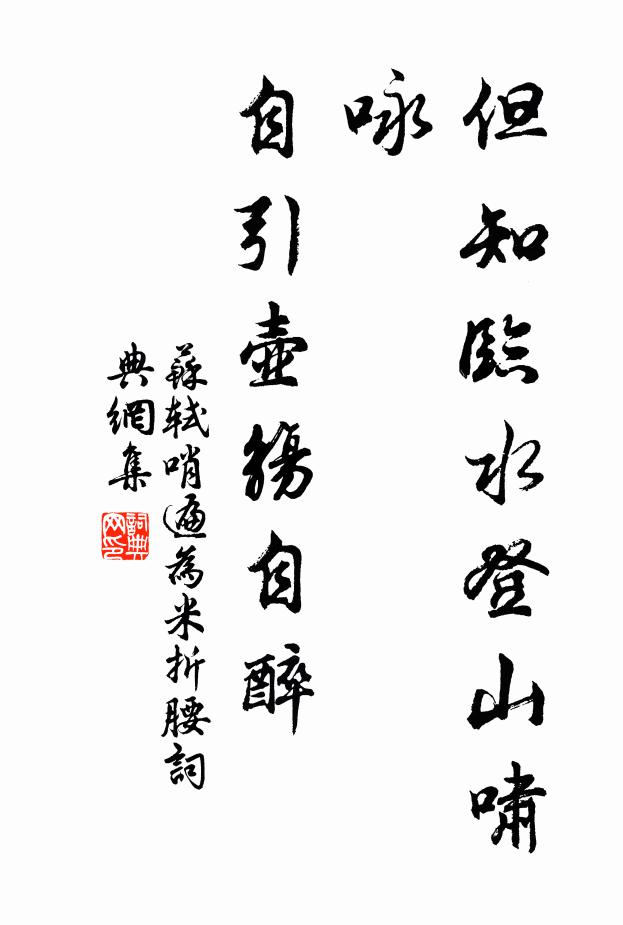 但知臨水登山嘯
咏
自引壺觴自醉
蘇軾哨遍為米折腰詞
典網集
詞典
网印